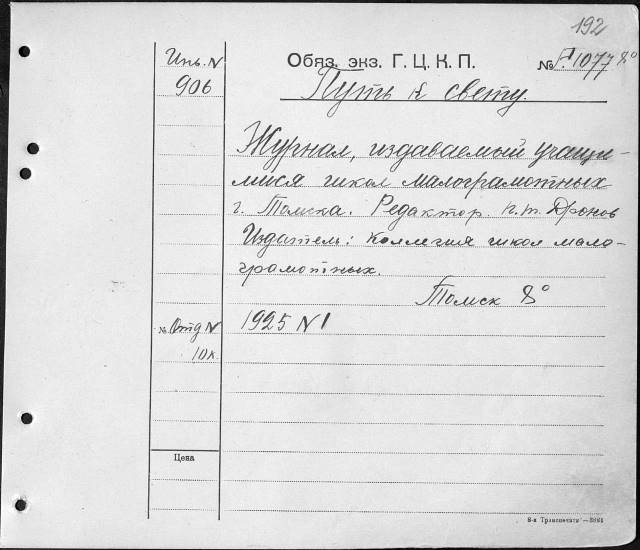 192
Инв. N
906
Обяз. экз. Г. Ц. К. П.
№ 1077 8°
Путь к свету.
Журнал, издаваемый учащи-
мися школ малограмотных
г. Томска. Редактор. п. т. Дронов
Издатель: Коллегия школ мало-
грамотных.
Томск 8°
№ Отд N
10к.
1925 N 1
Цена
8-я Транспечати —